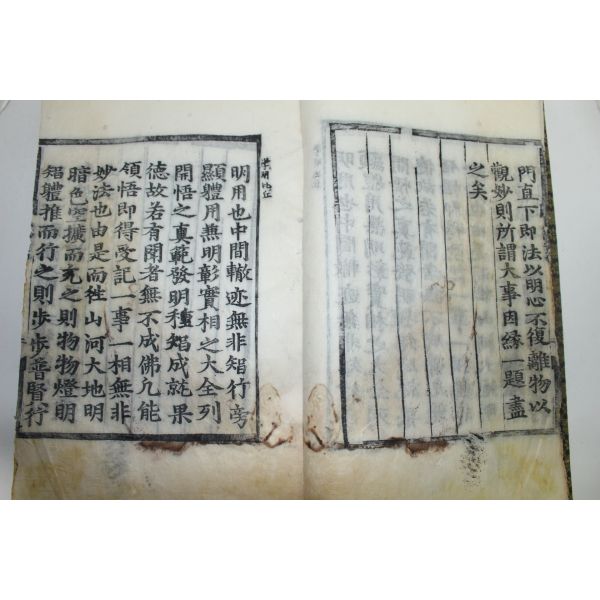 門直下即法以明心不復離物以
觀妙則所謂大事因緣一題盡
之矣
明用也中間轍迹無非智行旁
顯體用兼明彰實相之大全列
開悟之真範發明種智成就果
德故若有聞者無不成佛凡能
領悟即得受記一事一相無非
妙法也由是而往山河大地明
暗色空擴而充之則物物燈明
智體推而行之則步步普賢行